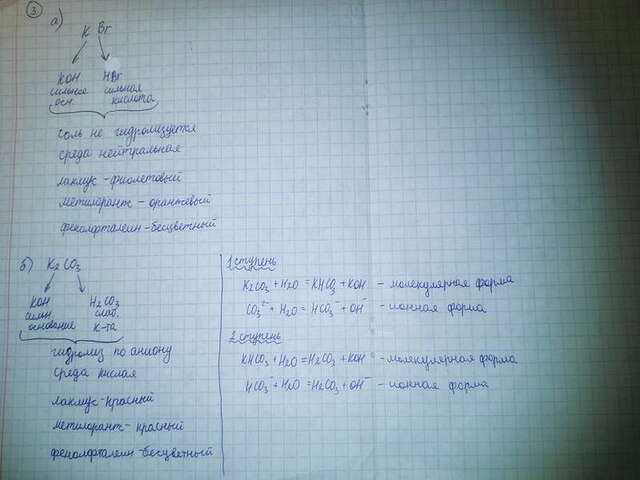 3.
а)
K Br
KOH HBr
сильное сильная
осн. кислота
соль не гидролизуется
среда нейтральная
лакмус - фиолетовый
метилоранж - оранжевый
фенолфталеин - бесцветный
б) K2CO3
KOH H2CO3
сильн. слаб.
основание к-та
гидролиз по аниону
среда кислая
лакмус - красный
метилоранж - красный
фенолфталеин - бесцветный
1 ступень
K2CO3 + H2O = KHCO3 + KOH - молекулярная форма
CO3²⁻ + H2O = HCO3⁻ + OH⁻ - ионная форма
2 ступень
KHCO3 + H2O = H2CO3 + KOH - молекулярная форма
HCO3⁻ + H2O = H2CO3 + OH⁻ - ионная форма